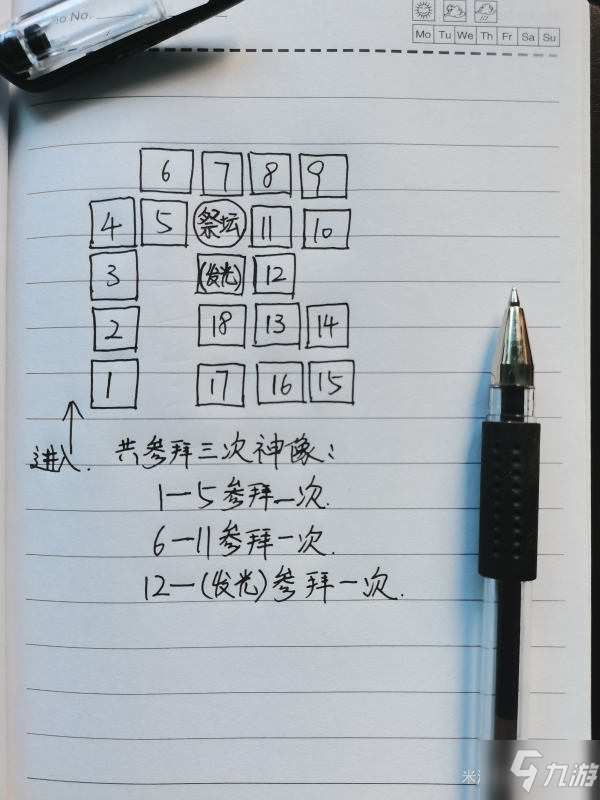 No.
Mo Tu We Th Fr Sa Su
6 7 8 9
4 5 祭坛 11 10
3 (发光) 12
2 18 13 14
1 17 16 15
进入.
共参拜三次神像:
1—5参拜一次.
6—11参拜一次.
12—(发光)参拜一次.
米
九游